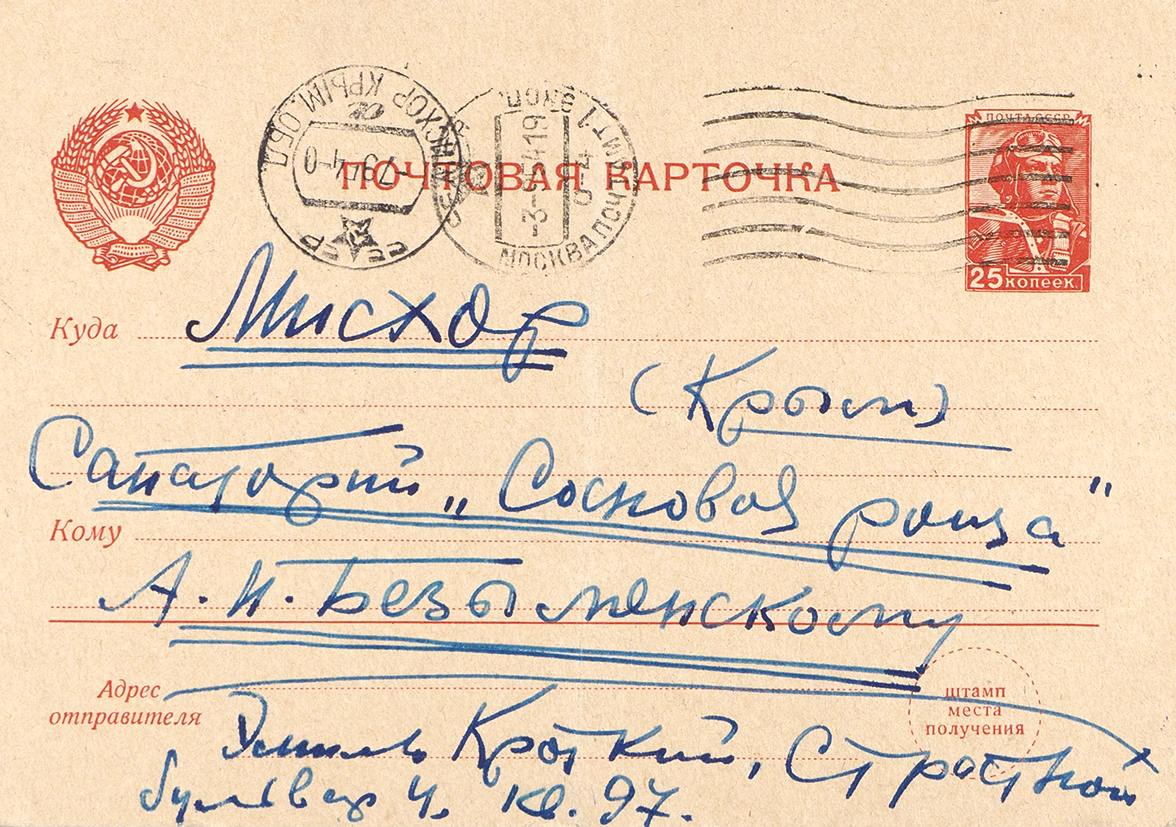 ПОЧТОВАЯ КАРТОЧКА
МИСХОР КРЫМ. ОБЛ
МОСКВА ПОЧТАМТ 1 ЭКСП.
ПОЧТА СССР
25 КОПЕЕК.
Куда Мисхор
(Крым)
Санаторий „Сосновая роща"
Кому
А. И. Безыменскому
Адрес отправителя
штамп
места
получения
Эмиль Кроткий, Страстной
бульвар 4, кв. 97.